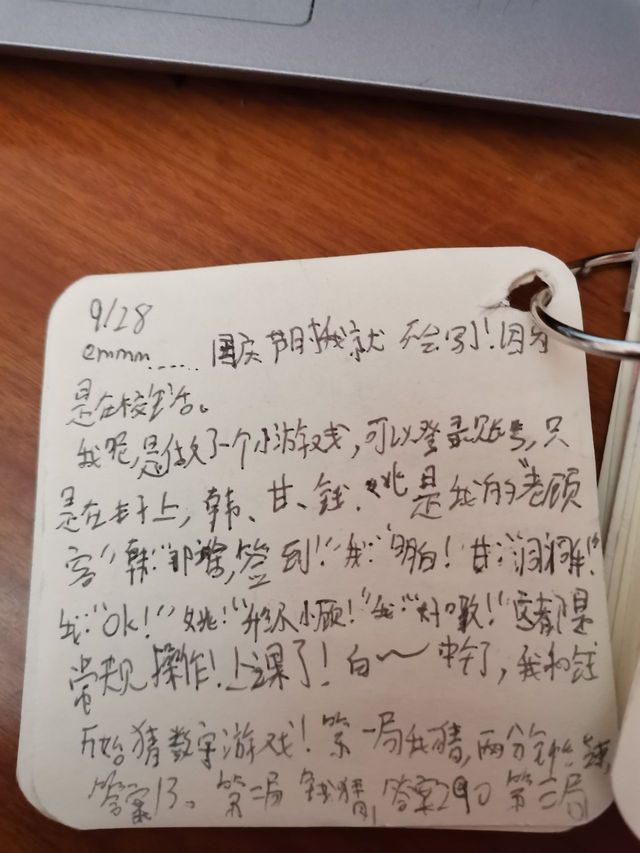 9/28
emmm...... 国庆节时我就不会写！因为
是在校生活。
我呢，是做了一个小游戏，可以登录账号，只
是在本子上，韩、甘、钱、姚是我的“老顾
客”韩：“那啥，签到！”我：“明白！甘：
我：“OK！”姚：“升级小顾！”我：“好嘞！”这都是
常规操作！上课了！白~~中午了，我和钱
开始猜数字游戏！第一局我猜，两分钟
答案13。第二局 钱猜，答案290 第三局